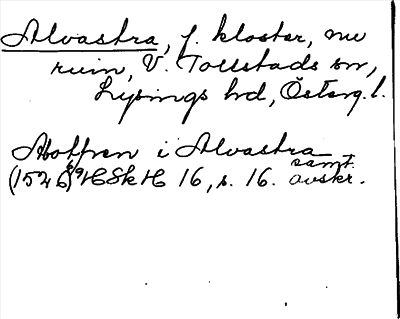 Alvastra, f. kloster, nu
ruin, V. Tollstads sn,
Lysings hd, Österg. l.
Abotthen i Alvastra
(1526) HSkH 16, s. 16. samt. avskr.